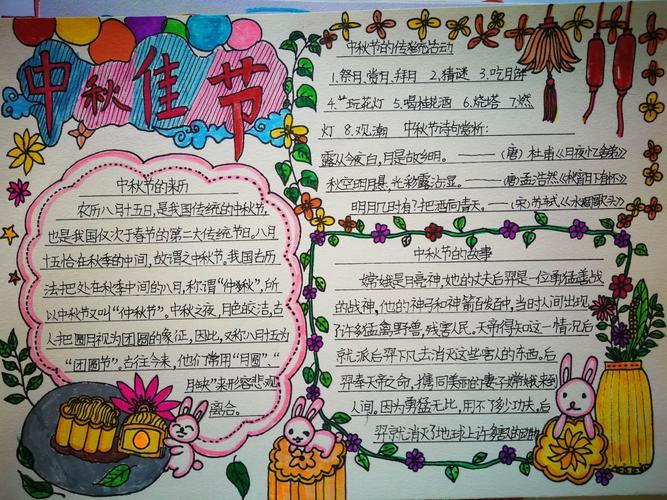 中秋佳节
中秋节的来历
农历八月十五日,是我国传统的中秋节,
也是我国仅次于春节的第二大传统节日。八月
十五恰在秋季的中间,故谓之中秋节,我国古历
法把处在秋季中间的八月,称谓“仲秋”,所
以中秋节又叫“仲秋节”。中秋之夜,月色皎洁,古
人把圆月视为团圆的象征,因此,又称八月十五为
“团圆节”。古往今来,他们常用“月圆”、“
月缺”来形容悲观
离合。
中秋节的传统活动
1.祭月,赏月,拜月 2.猜谜 3.吃月饼
4.玩花灯 5.喝桂花酒 6.烧塔 7.燃
灯 8.观潮 中秋节诗句赏析:
露从今夜白,月是故乡明。——(唐)杜甫《月夜忆舍弟》
秋空明月悬,光彩露沾湿。——(唐)孟浩然《秋宵月有怀》
明月几时有?把酒问青天。——(宋)苏轼《水调歌头》
中秋节的故事
嫦娥是月亮神,她的丈夫后羿是一位勇猛善战
的战神,他的神弓和神箭百发百中,当时人间出现
了许多猛禽野兽,残害人民。天帝得知这一情况后
就派后羿下凡去消灭这些害人的东西。后
羿奉天帝之命,携同美丽的妻子嫦娥来到
人间。因为勇猛无比,用不了多少功夫,后
羿就消灭了地球上许多害人的